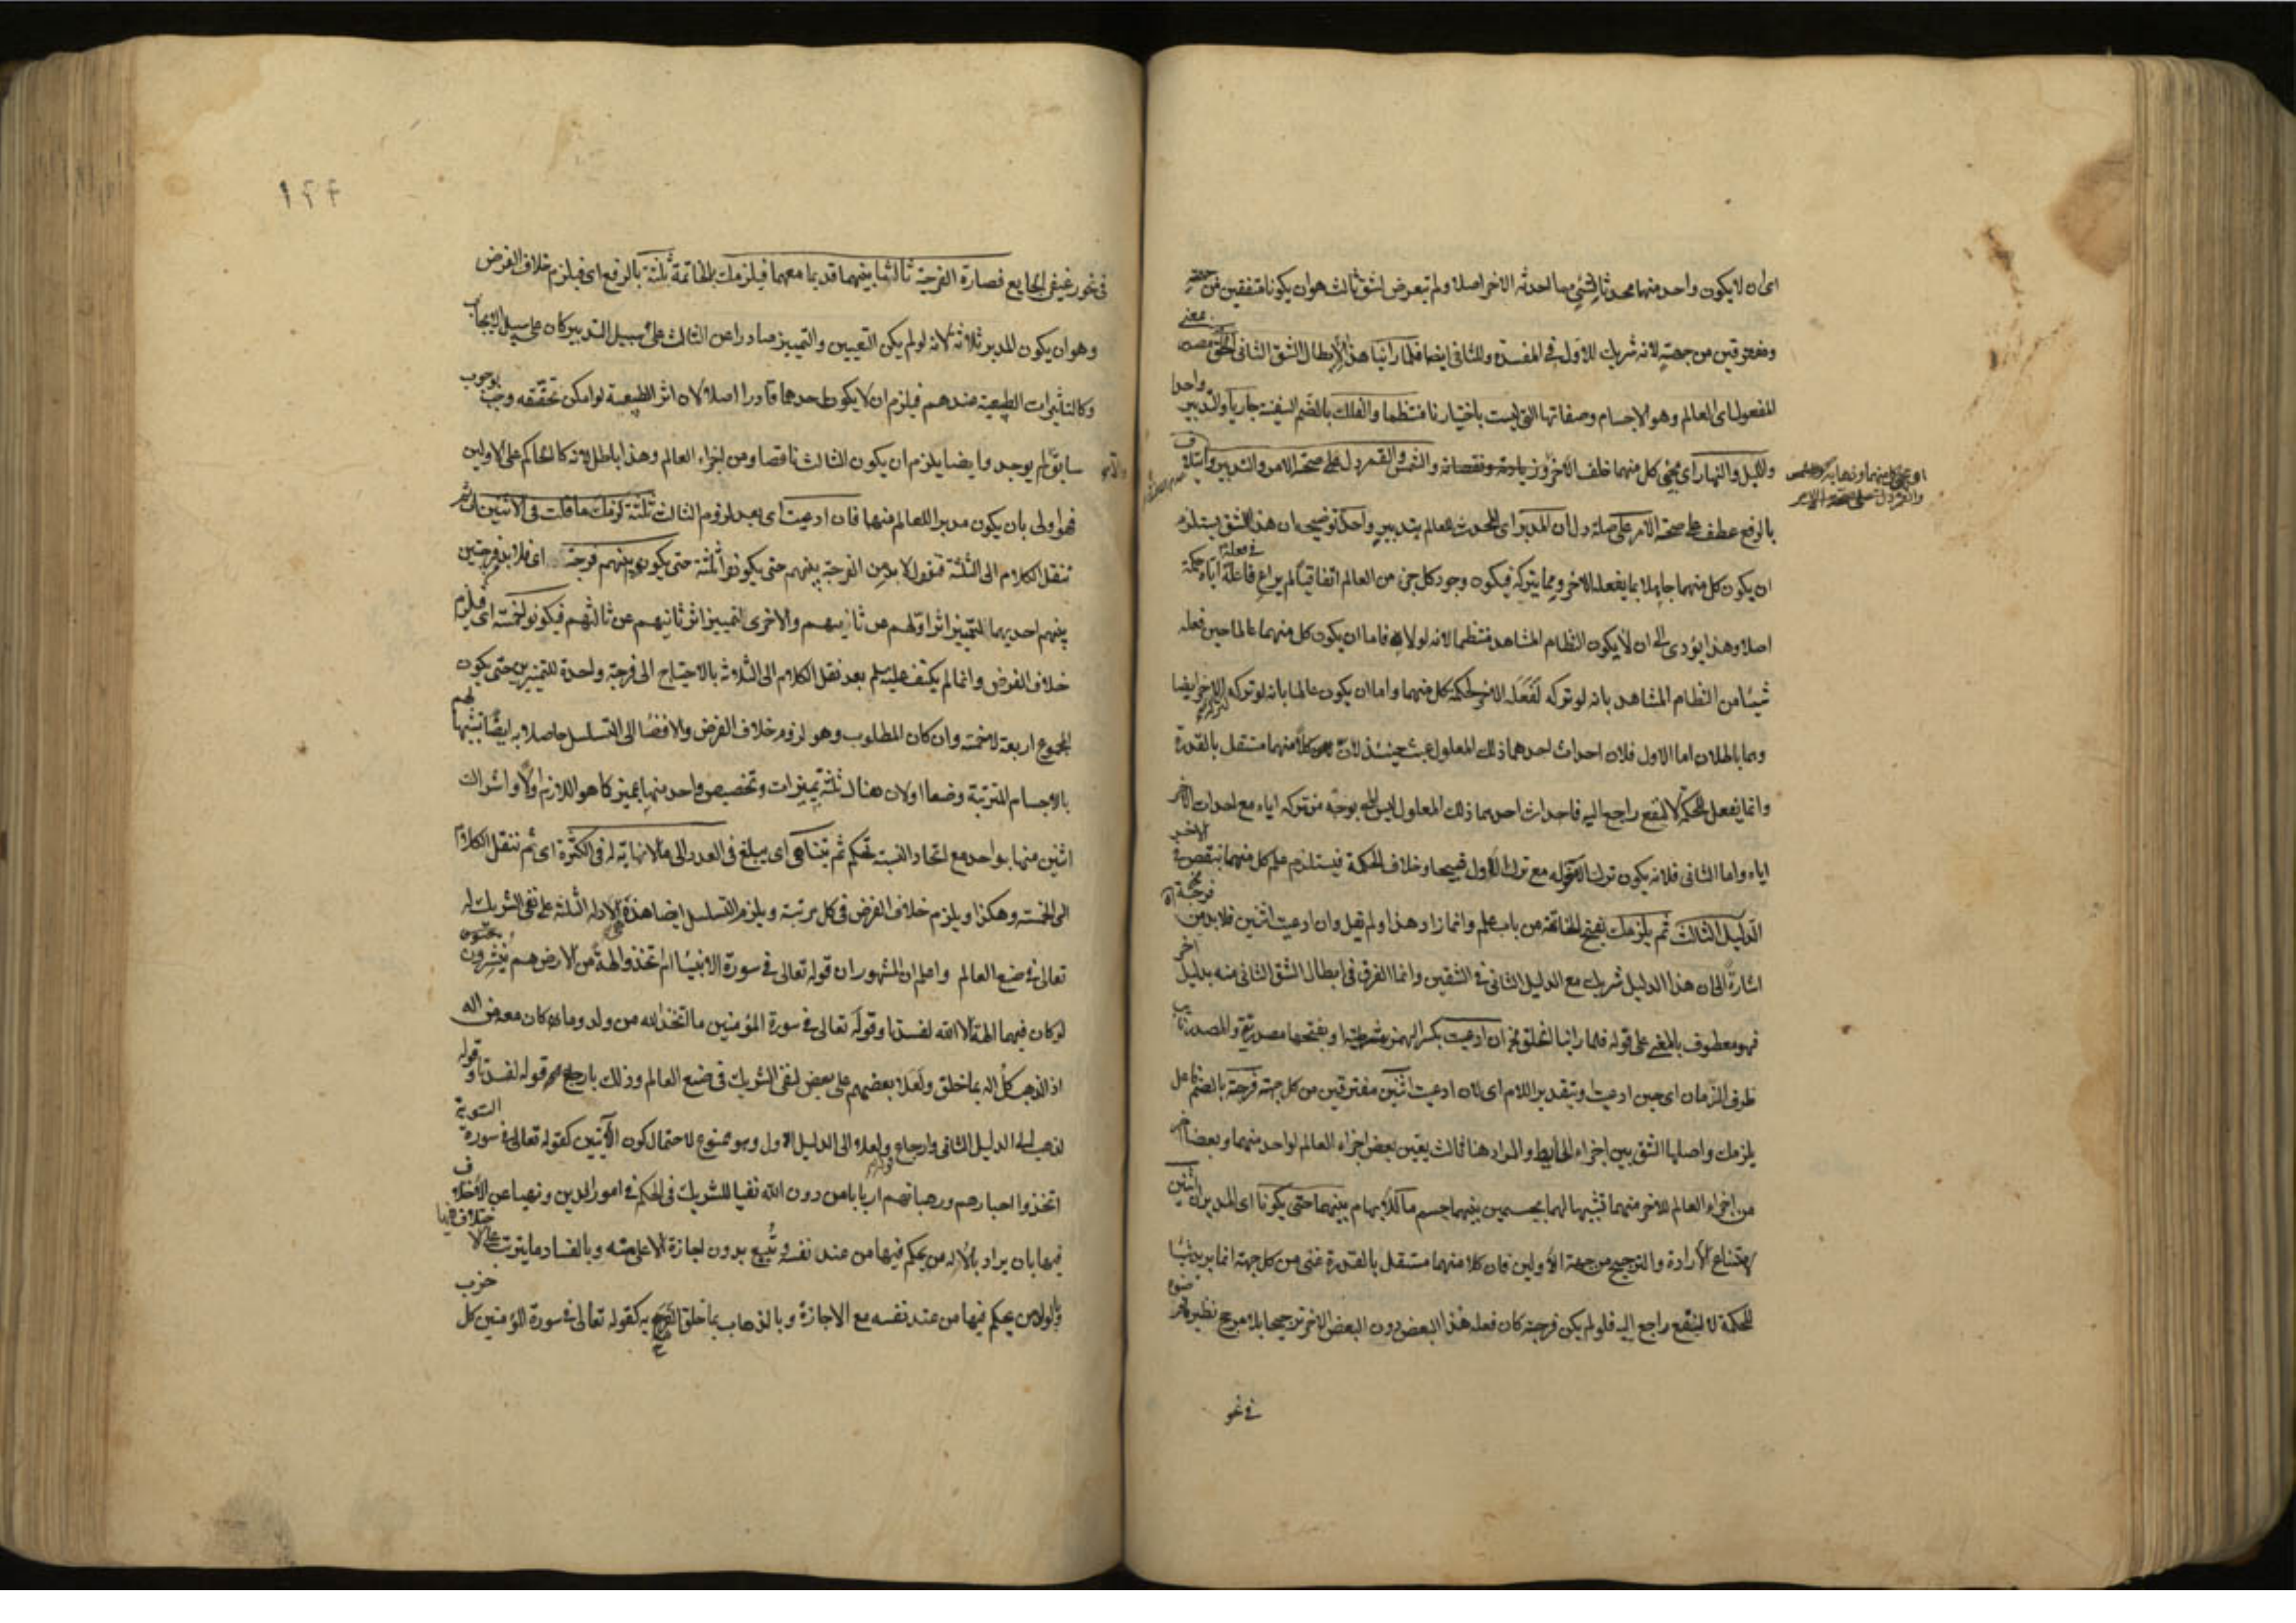 اى ان لا يكون واحد منهما محدثا لشئ مما احدثه الاخر اصلا ولم يتعرض لشق ثالث هو ان يكونا متفقين من جهة
ومفترقين من جهة لانه شريك للاول فى المفسدة وللثانى ايضا فلما راينا هذا لابطال الشق الثانى الخلق بمعنى
المفعول اى العالم وهو الاجسام وصفاتها التى ليست باختيارنا منتظما والفلك بالضم السفينة جاريا والتدبير واحدا
والليل والنهار اى مجئ كل منهما خلف الاخر و زيادته ونقصانه والشمس والقمر دل على صحة الامر والتدبير وايتلاف
او مجئ والشمس
والقمر دل على صحة الامر
بالرفع عطف على صحة الامر على صلة دل ان المدبر اى المحدث للعالم بتدبير واحد توضيحه ان هذا الشق يستلزم
ان يكون كل منهما جاهلا بما يفعله الاخر وبما يتركه فيكون وجود كل جزء من العالم اتفاقيا لم يراع فاعله اياه حكمة فى فعله
اصلا وهذا يؤدى الى ان لا يكون النظام المشاهد منتظما لانه لولاه فاما ان يكون كل منهما عالما حين فعله
شيئا من النظام المشاهد بانه لو تركه لفعله الاخر لحكمة كل منهما واما ان يكون عالما بانه لو تركه الاخر ايضا
وهما باطلان اما الاول فلان احداث احدهما ذلك المعلول عبث حينئذ لان كلا منهما مستقل بالقدرة
وانما يفعل لحكمة لا لنفع راجع اليه فاحداث احدهما ذلك المعلول ليس بوجه من تركه اياه مع احداث الاخر
اياه واما الثانى فلانه يكون ترك الاخر له مع ترك الاول قبيحا وخلاف الحكمة فيستلزم علم كل منهما بنقص فى الاخر
الدليل الثالث ثم يلزمك بفتح الخاتمة من باب علم وانما زاد هذا ولم يقل وان ادعيت اثنين فلا بد من فرجة
اشارة الى ان هذا الدليل شريك مع الدليل الثانى فى الشقين وانما الفرق فى ابطال الشق الثانى منه بدليل اخر
فهو معطوف بالمعنى على قوله فلما راينا الخلق الخ ان ادعيت بكسر الهمزة شرطية او بفتحها مصدرية والمصدر نايب
ظرف الزمان اى حين ادعيت او بتقدير اللام اى لان ادعيت اثنين مفترقين من كل جهة فرجة بالضم فاعل
يلزمك واصلها الشق بين اجزاء الحايط والمراد هنا ثالث يعين بعض اجزاء العالم لواحد منهما وبعضا اخر
من اجزاء العالم للاخر منهما تشبيها لهما بجسمين بينهما جسم ما بينهما حتى يكونا اى المدبران اثنين
لامتناع الارادة والترجيح من جهة الاولين فان كلا منهما مستقل بالقدرة غنى من كل جهة انما يريد شيئا
للحكمة لا لنفع راجع اليه فلو لم يكن فرجة كان فعله هذا البعض دون البعض الاخر ترجيحا بلا مرجح نظير
فى غو
١٢٢
فصارة الفرجة ثالثا بينهما قديما معهما فيلزمك بالخاتمة ثلثة بالرفع اى فيلزم خلاف الفرض
وهو ان يكون المدبر ثلاثة لانه لو لم يكن التعيين والتمييز صادرا عن الثالث على سبيل التدبير كان على سبيل الايجاب
وكالتاثيرات الطبيعية عندهم فيلزم ان لا يكون احدهما قادرا اصلا لان اثر الطبيعة لو امكن تحققه وجب بوجوب
سابق لم يوجد وايضا يلزم ان يكون الثالث ناقصا ومن اجزاء العالم وهذا باطل لانه كالحاكم على الاولين
فهو اولى بان يكون مدبرا للعالم منهما فان ادعيت اى بعد لزوم الثالث ثلثة لزمك ما قلت فى الاثنين اى ثم
ننقل الكلام الى الثلثة فنقول لا بد من الفرجة بينهم حتى يكونوا ثلثة حتى يكون بينهم فرجة اى فلا بد فرجتين
بينهم احديهما لتمييز اثر اولهم عن ثانيهم والاخرى لتمييز اثر ثانيهم عن ثالثهم فيكونوا خمسة اى فيلزم
خلاف الفرض وانما لم يكتف عليه سلم بعد نقل الكلام الى الثلاثة بالاحتياج الى فرجة واحدة للتمييزين حتى يكون
المجموع اربعة لا خمسة وان كان المطلوب وهو لزوم خلاف الفرض والافضا الى التسلسل حاصلا به ايضا تشبيها لهم
بالاجسام المترتبة وضعا اولان هناك ثلثة تمييزات وتخصيص واحد منها بمميز كما هو اللازم اولا واشراك
اثنين منها بواحد مع اتحاد النسبة تحكم ثم يتناهى اى يبلغ فى العدد الى ما لا نهاية له فى الكثرة اى ثم ننقل الكلام
الى الخمسة وهكذا ويلزم خلاف الفرض فى كل مرتبة ويلزم التسلسل ايضا هذه الادلة الثلثة على نفى الشريك له
تعالى فى صنع العالم واعلم ان المشهور ان قوله تعالى فى سورة الانبيا ام اتخذوا الهة من الارض هم ينشرون
لو كان فيهما الهة الا الله لفسدتا وقوله تعالى فى سورة المؤمنين ما اتخذ الله من ولد وما كان معه من اله
اذا لذهب كل اله بما خلق ولعلا بعضهم على بعض لنفى الشريك فى صنع العالم وذلك بارجاع قوله لفسدتا وقوله
لذهب الى الدليل الثانى وارجاع ولعلا الى الدليل الاول وهو ممنوع لاحتمال كون الآيتين كقوله تعالى فى سورة التوبة
اتخذوا احبارهم ورهبانهم اربابا من دون الله نفيا للشريك فى الحكم فى امور الدين ونهيا عن الاختلاف
فيها بان يراد بالاله من يحكم فيها من عند نفسه ويتبع بدون اجازة الاعلى منه وبالفساد ما يترتب على الاختلاف فيها
وبالولد من يحكم فيها من عند نفسه مع الاجازة وبالذهاب بما خلق الفرح به كقوله تعالى فى سورة المؤمنين كل حزب